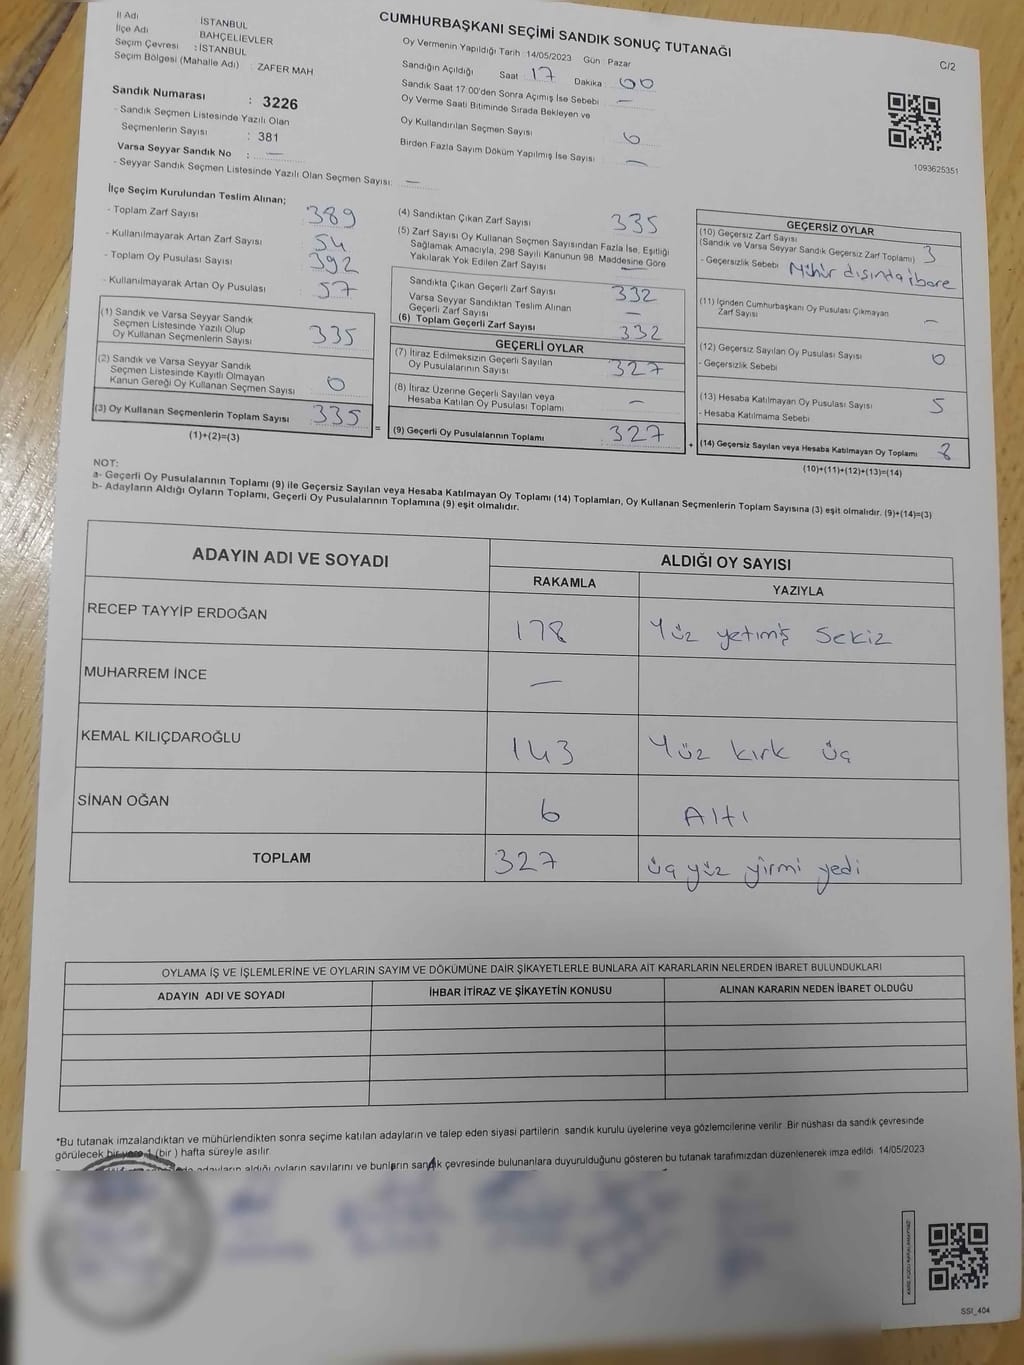 CUMHURBAŞKANI SEÇİMİ SANDIK SONUÇ TUTANAĞI
C/2
İl Adı İSTANBUL
İlçe Adı BAHÇELİEVLER
Seçim Çevresi : İSTANBUL
Seçim Bölgesi (Mahalle Adı) : ZAFER MAH
Sandık Numarası : 3226
- Sandık Seçmen Listesinde Yazılı Olan
Seçmenlerin Sayısı : 381
Varsa Seyyar Sandık No : —
- Seyyar Sandık Seçmen Listesinde Yazılı Olan Seçmen Sayısı: —
Oy Vermenin Yapıldığı Tarih : 14/05/2023 Gün : Pazar
Sandığın Açıldığı Saat : 17 Dakika : 00
Sandık Saat 17:00'den Sonra Açımış İse Sebebi : —
Oy Verme Saati Bitiminde Sırada Bekleyen ve
Oy Kullandırılan Seçmen Sayısı 6
Birden Fazla Sayım Döküm Yapılmış İse Sayısı : —
1093625351
İlçe Seçim Kurulundan Teslim Alınan;
- Toplam Zarf Sayısı : 389
- Kullanılmayarak Artan Zarf Sayısı : 54
- Toplam Oy Pusulası Sayısı : 392
- Kullanılmayarak Artan Oy Pusulası : 57
(1) Sandık ve Varsa Seyyar Sandık
Seçmen Listesinde Yazılı Olup
Oy Kullanan Seçmenlerin Sayısı : 335
(2) Sandık ve Varsa Seyyar Sandık
Seçmen Listesinde Kayıtlı Olmayan
Kanun Gereği Oy Kullanan Seçmen Sayısı : 0
(3) Oy Kullanan Seçmenlerin Toplam Sayısı : 335
(1)+(2)=(3)
=
(4) Sandıktan Çıkan Zarf Sayısı : 335
(5) Zarf Sayısı Oy Kullanan Seçmen Sayısından Fazla İse, Eşitliği
Sağlamak Amacıyla, 298 Sayılı Kanunun 98. Maddesine Göre
Yakılarak Yok Edilen Zarf Sayısı : —
Sandıkta Çıkan Geçerli Zarf Sayısı : 332
Varsa Seyyar Sandıktan Teslim Alınan
Geçerli Zarf Sayısı : —
(6) Toplam Geçerli Zarf Sayısı : 332
GEÇERLİ OYLAR
(7) İtiraz Edilmeksizin Geçerli Sayılan
Oy Pusulalarının Sayısı : 327
(8) İtiraz Üzerine Geçerli Sayılan veya
Hesaba Katılan Oy Pusulası Toplamı : —
(9) Geçerli Oy Pusulalarının Toplamı : 327
+
GEÇERSİZ OYLAR
(10) Geçersiz Zarf Sayısı
(Sandık ve Varsa Seyyar Sandık Geçersiz Zarf Toplamı) : 3
- Geçersizlik Sebebi : Mühür dışında ibare
(11) İçinden Cumhurbaşkanı Oy Pusulası Çıkmayan
Zarf Sayısı : —
(12) Geçersiz Sayılan Oy Pusulası Sayısı : 0
- Geçersizlik Sebebi
(13) Hesaba Katılmayan Oy Pusulası Sayısı : 5
- Hesaba Katılmama Sebebi
(14) Geçersiz Sayılan veya Hesaba Katılmayan Oy Toplamı : 8
(10)+(11)+(12)+(13)=(14)
NOT:
a- Geçerli Oy Pusulalarının Toplamı (9) ile Geçersiz Sayılan veya Hesaba Katılmayan Oy Toplamı (14) Toplamları, Oy Kullanan Seçmenlerin Toplam Sayısına (3) eşit olmalıdır. (9)+(14)=(3)
b- Adayların Aldığı Oyların Toplamı, Geçerli Oy Pusulalarının Toplamına (9) eşit olmalıdır.
ADAYIN ADI VE SOYADI ALDIĞI OY SAYISI
RAKAMLA YAZIYLA
RECEP TAYYİP ERDOĞAN 178 Yüz yetmiş sekiz
MUHARREM İNCE —
KEMAL KILIÇDAROĞLU 143 Yüz kırk üç
SİNAN OĞAN 6 Altı
TOPLAM 327 üç yüz yirmi yedi
OYLAMA İŞ VE İŞLEMLERİNE VE OYLARIN SAYIM VE DÖKÜMÜNE DAİR ŞİKAYETLERLE BUNLARA AİT KARARLARIN NELERDEN İBARET BULUNDUKLARI
ADAYIN ADI VE SOYADI İHBAR İTİRAZ VE ŞİKAYETİN KONUSU ALINAN KARARIN NEDEN İBARET OLDUĞU
*Bu tutanak imzalandıktan ve mühürlendikten sonra seçime katılan adayların ve talep eden siyasi partilerin sandık kurulu üyelerine veya gözlemcilerine verilir. Bir nüshası da sandık çevresinde
görülecek bir yere 1 (bir ) hafta süreyle asılır.
adayların aldığı oyların sayılarını ve bunların sandık çevresinde bulunanlara duyurulduğunu gösteren bu tutanak tarafımızdan düzenlenerek imza edildi. 14/05/2023
SSI_404